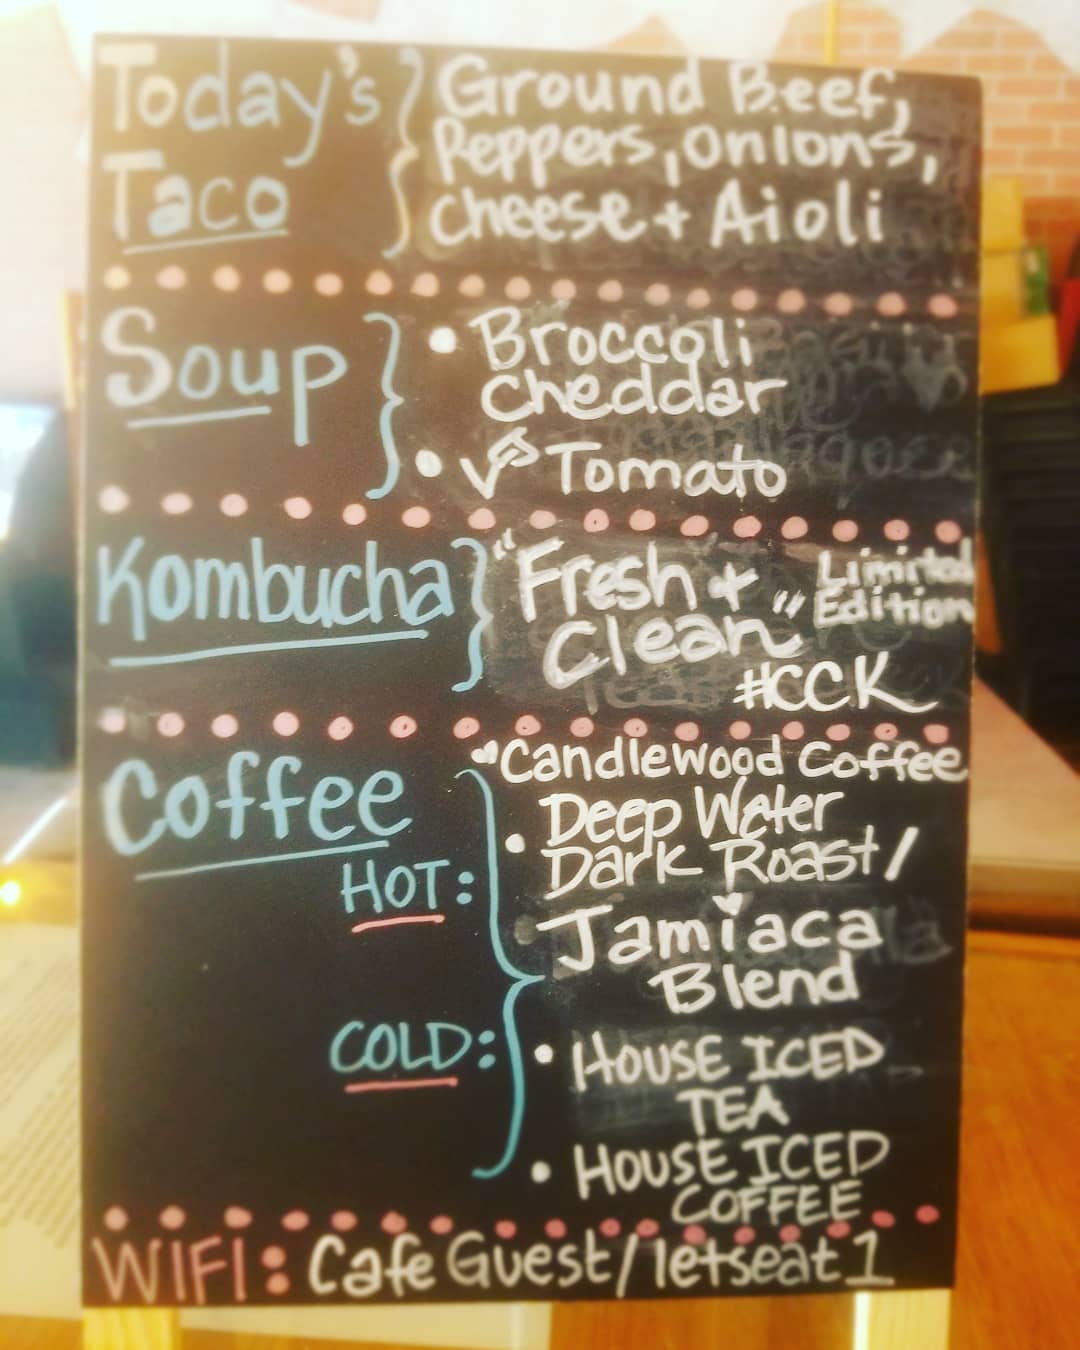 Today's
Taco
Ground Beef,
Peppers, onions,
cheese + Aioli
Soup
Broccoli
Cheddar
V Tomato
Kombucha
"Fresh +
Clean"
Limited
Edition
#CCK
Coffee
Candlewood Coffee
HOT:
Deep Water
Dark Roast/
Jamiaca
Blend
COLD:
HOUSE ICED
TEA
HOUSE ICED
COFFEE
WIFI: Cafe Guest/letseat1